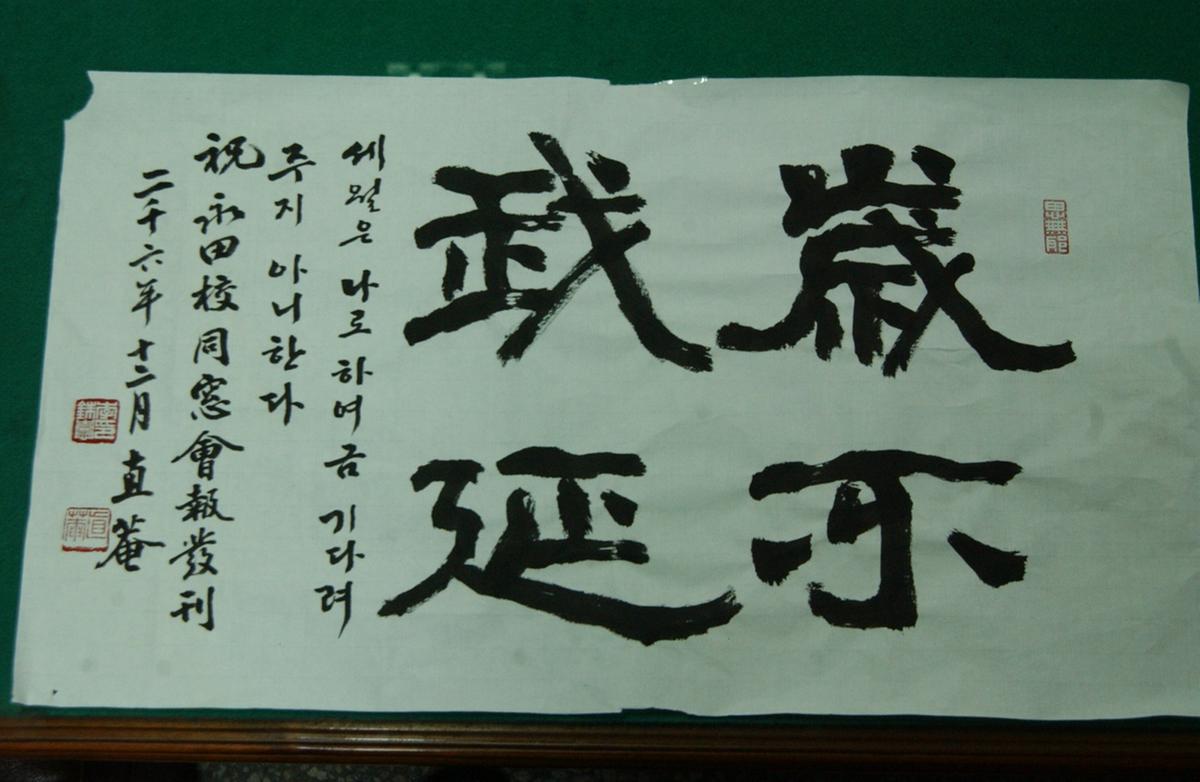 思無邪
歲不
我延
세월은 나로하여금 기다려
주지 아니한다
祝 永田校同窓會報發刊
二千六年 十二月 直菴
直菴